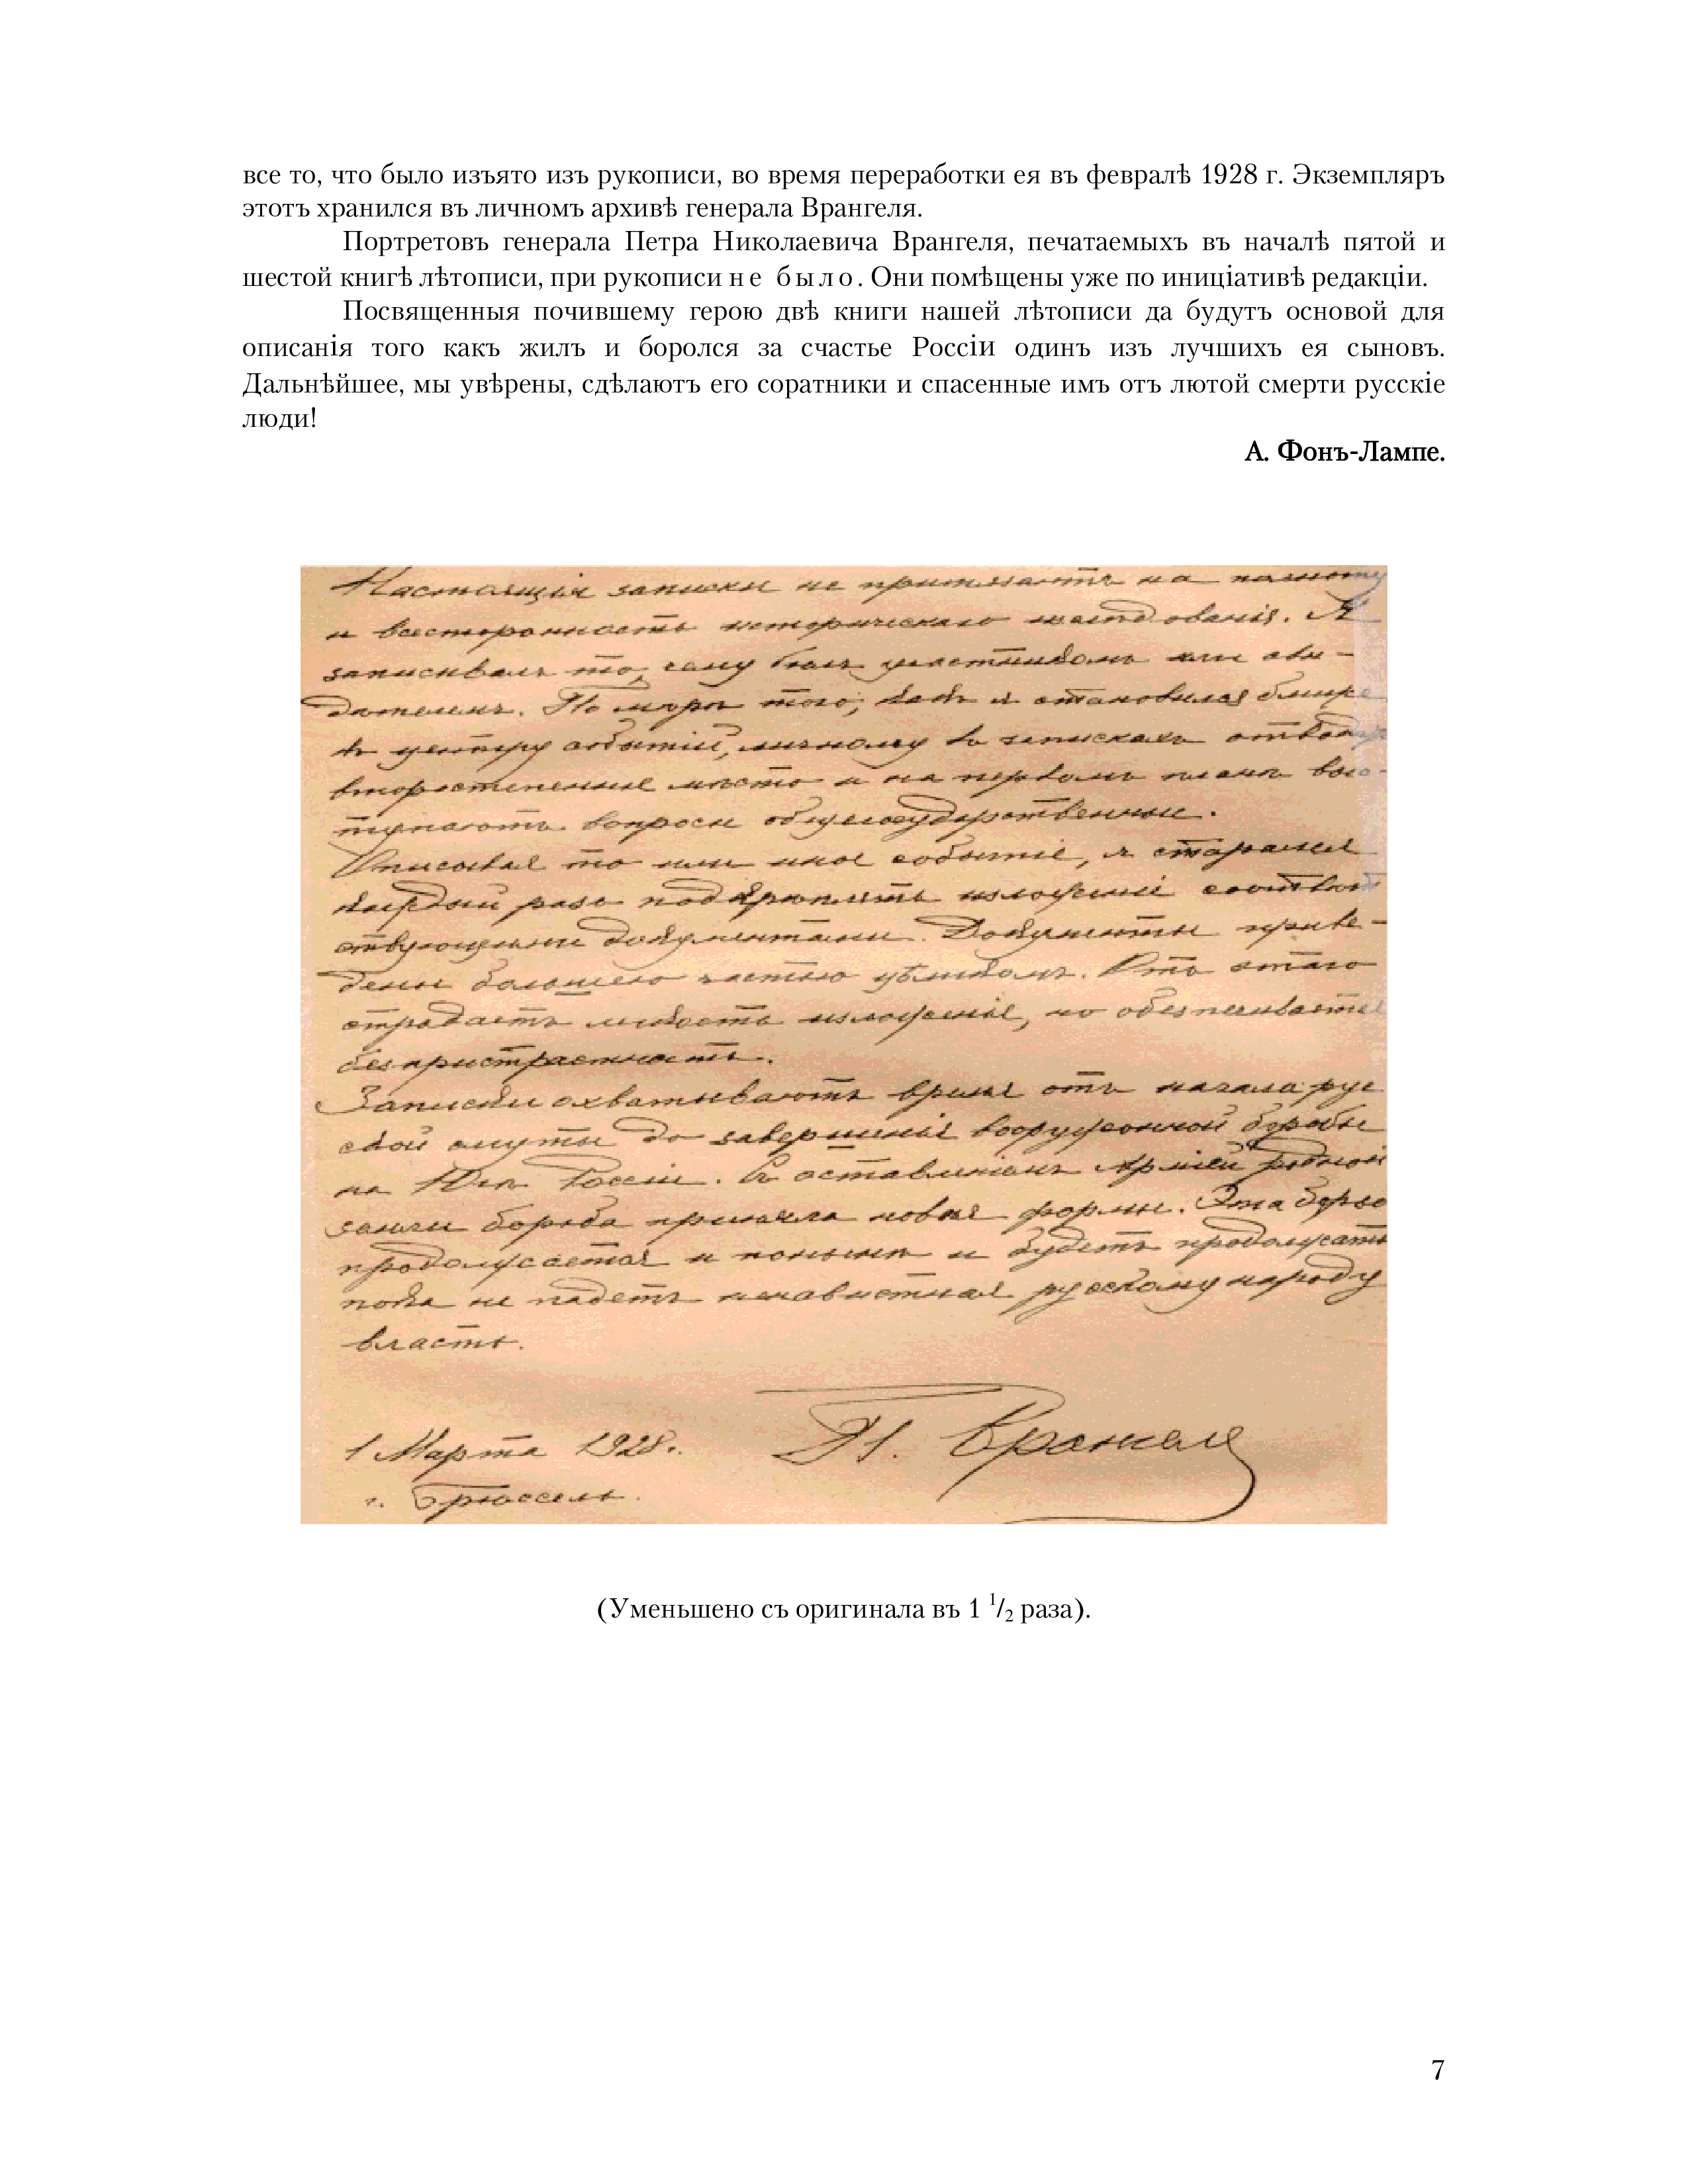 все то, что было изъято изъ рукописи, во время переработки ея въ февралѣ 1928 г. Экземпляръ
этотъ хранился въ личномъ архивѣ генерала Врангеля.
Портретовъ генерала Петра Николаевича Врангеля, печатаемыхъ въ началѣ пятой и
шестой книгѣ лѣтописи, при рукописи не было. Они помѣщены уже по иниціативѣ редакціи.
Посвященныя почившему герою двѣ книги нашей лѣтописи да будутъ основой для
описанія того какъ жилъ и боролся за счастье Россіи одинъ изъ лучшихъ ея сыновъ.
Дальнѣйшее, мы увѣрены, сдѣлаютъ его соратники и спасенные имъ отъ лютой смерти русскіе
люди!
А. Фонъ-Лампе.
Настоящія записки не притязаютъ на полноту
и всесторонность историческаго изслѣдованія. Я
записывалъ то, чему былъ участникомъ или сви-
дѣтелемъ. По мѣрѣ того, какъ я становился ближе
къ центру событій, личному въ запискахъ отвод
второстепенное мѣсто и на первомъ планѣ выс-
тупаютъ вопросы общегосударственные.
Описывая то или иное событіе, я старался
каждый разъ подкрѣплять изложеніе соотвѣт
ствующими документами. Документы приве-
дены большею частью цѣликомъ. Отъ этого
страдаетъ легкость изложенія, но обезпечивается
безпристрастность.
Записки охватываютъ время отъ начала рус
ской смуты до завершенія вооруженной борьбы
на Югѣ Россіи. Съ оставленіемъ Арміей родной
земли борьба приняла новыя формы. Эта борьб
продолжается и понынѣ и будетъ продолжать
пока не падетъ ненавистная русскому народу
власть.
1 Марта 1928г.
П. Врангель
г. Брюссель.
(Уменьшено съ оригинала въ 1 1/2 раза).
7